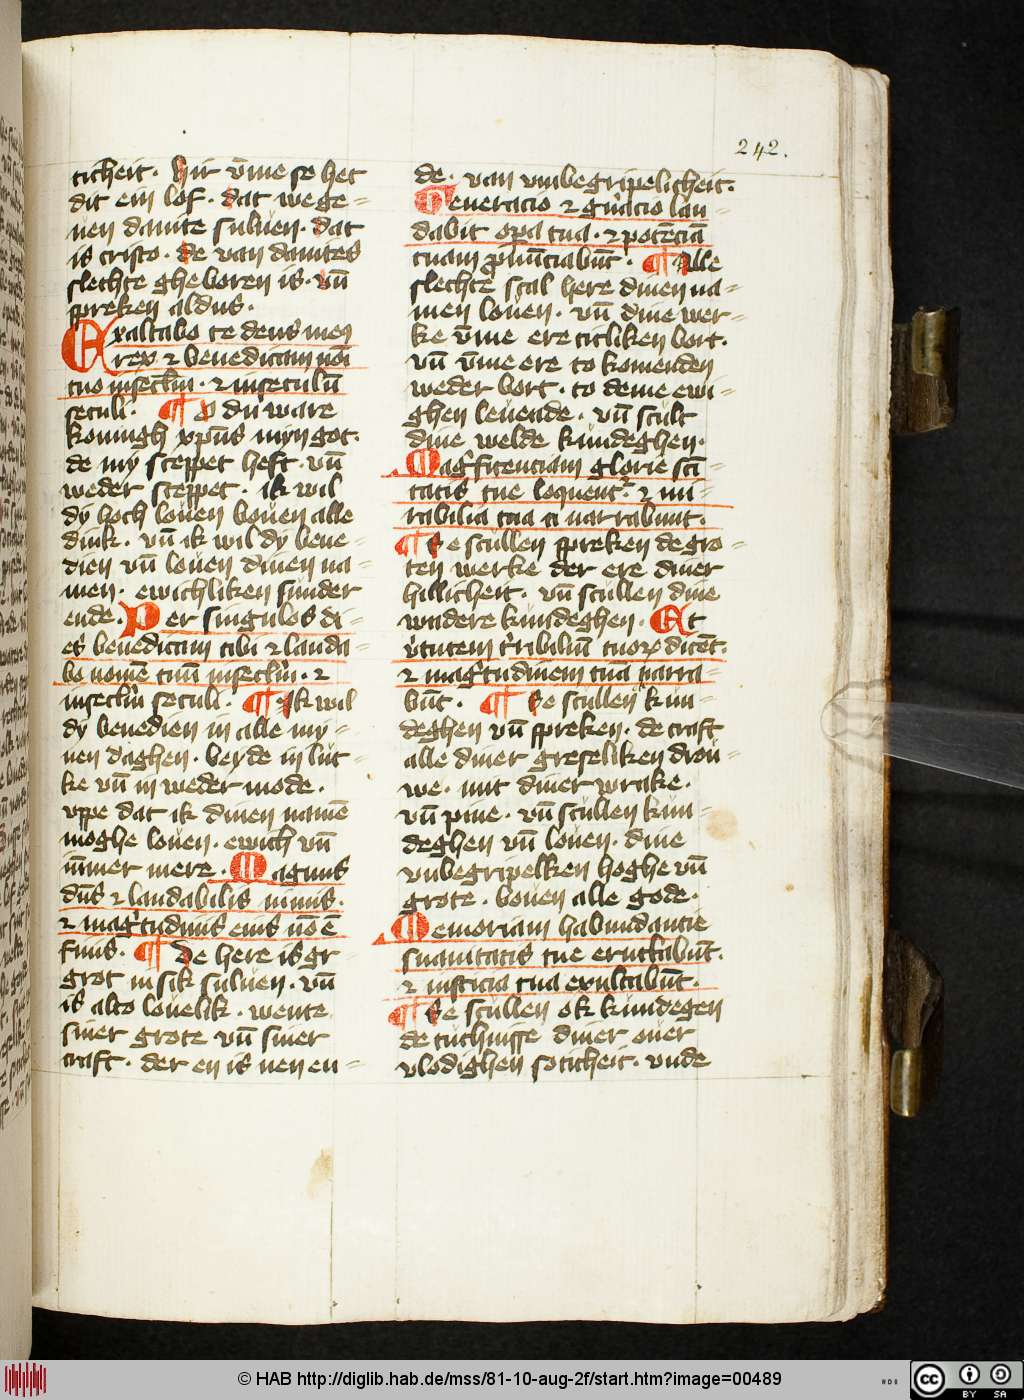 242.
ticheit. hir v̄me so het
dit ein lof. dat we ge=
uen dauite suluen. dat
is cristo. de van dauites
slechte gheboren is. vn̄
spreken aldus.
Exaltabo te deus meus
rex ⁊ benedicam noī
tuo in secl̄m. ⁊ in seculū
seculi. ¶ O du ware
koningh xp̄us myn got.
de my sceppet heft. vn̄
weder sceppet. ik wil
dy hoch louen bouen alle
dink. vn̄ ik wil dy bene=
dien vn̄ louen dinen na=
men. ewichliken sunder
ende. Per singulos di=
es benedicam tibi ⁊ lauda=
bo nomē tuū in secl̄m. ⁊
in secl̄m seculi. ¶ Ik wil
dy benedien in alle my=
nen daghen. beyde in luc=
ke vn̄ in weder mode.
vppe dat ik dinen namē
moghe louen. ewich vn̄
ūmer mere. Magnus
dn̄s ⁊ laudabilis nimis.
⁊ mag̾tudinis eius nō ē
finis. ¶ De here is gr
grot in sik suluen. vn̄
is alto louelik. wente
siner grote vn̄ siner
craft. der en is nen en=
de. van vmbegripelicheit.
Generacio ⁊ gn̄acio lau=
dabit oꝑa tua. ⁊ potēciā
tuam ꝓnūciabūt. ¶ Alle
slechte scal here dinen na=
men louen. vn̄ dine wer=
ke v̄me ere titliken bort.
vn̄ v̄me ere to komenden
weder bort. to deme ewi=
ghen leuende. vn̄ scult
dine welde kundeghen.
Mag̾ficenciam glorie scī=
tatis tue loquent᷑. ⁊ mi=
rabilia tua narrabunt.
¶ Se scullen spreken de gro=
ten werke der ere diner
hillicheit. vn̄ scullen dine
wūdere kundeghen. Et
v̾tutem t̾ribiliū tuoꝝ dicēt.
⁊ mag̾tudinem tuā narra=
būt. ¶ Se scullen kun=
deghen vn̄ spreken. de craft
alle diner greseliken drou=
we. mit diner wrake.
vn̄ pine. vn̄ scullen kun=
deghen vn̄ louen. dine
vnbegripelken hoghe vn̄
grote. bouen alle gode.
Memoriam habundancie
suauitatis tue eructabūt.
⁊ iusticia tua exultabūt.
¶ Se scullen ok kundegen
de tuchnisse diner ouer
vlodighen soticheit. vnde
© HAB http://diglib.hab.de/mss/81-10-aug-2f/start.htm?image=00489
cc BY SA